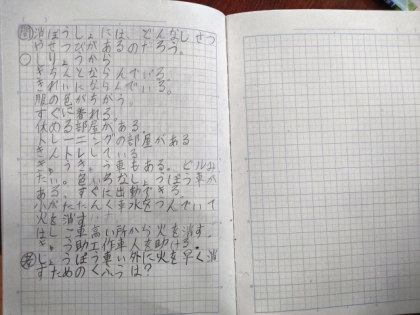 問 消ぼうしょには、どんなしせつ
やせつびがあるのだろう。
○しりょうから
きちんとならんでいる。
きれいにならんでいる。
服の色がちがう。
すぐに着れる。
休める部屋がある。
トレーニングの部屋がある
きんトレしている。
きゅうきゅう車もある。ビルみ
たい。色いろなしょうぼう車が
ある。すぐに出動できる。
小がたたんく車水をつんでいて
火を消す
はしご車高い所から火を消す。
きゅう助工作車人を助ける。
しょうぼう車い外に火を早く消
すためのくふうは？